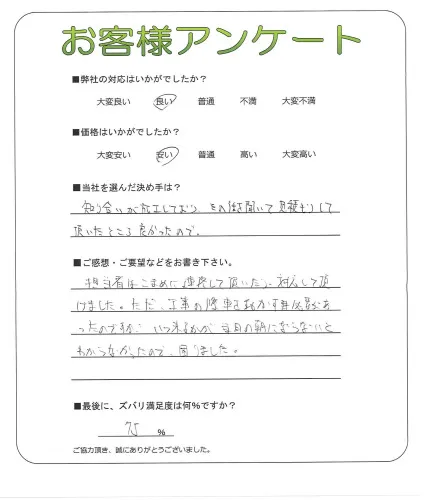 お客様アンケート
■弊社の対応はいかがでしたか？
大変良い 良い 普通 不満 大変不満
■価格はいかがでしたか？
大変安い 安い 普通 高い 大変高い
■当社を選んだ決め手は？
知り合いが施工しており、その話を聞いて見積もりして
頂いたところ良かったので。
■ご感想・ご要望などをお書き下さい。
担当者はこまめに連絡して頂いたり、対応して頂
けました。ただ、工事の際車を動かす必要があ
ったのですが、いつ来るかが当日の朝にならないと
わからなかったので、困りました。
■最後に、ズバリ満足度は何％ですか？
75 ％
ご協力頂き、誠にありがとうございました。